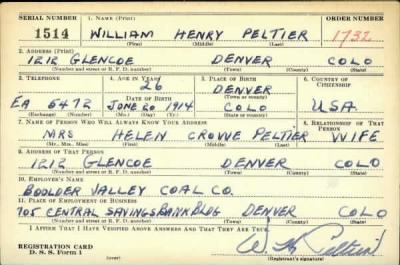 SERIAL NUMBER 1. NAME (Print) ORDER NUMBER
1514 WILLIAM HENRY PELTIER 1732
(First) (Middle) (Last)
2. ADDRESS (Print)
1212 GLENCOE DENVER COLO
(Number and street or R. F. D. number) (Town) (County) (State)
3. TELEPHONE 4. AGE IN YEARS 5. PLACE OF BIRTH 6. COUNTRY OF CITIZENSHIP
26 DENVER
DATE OF BIRTH (Town or county)
EA 6472 JUNE 20 1914 COLO USA
(Exchange) (Number) (Mo.) (Day) (Yr.) (State or country)
7. NAME OF PERSON WHO WILL ALWAYS KNOW YOUR ADDRESS 8. RELATIONSHIP OF THAT PERSON
MRS HELEN CROWE PELTIER WIFE
(Mr., Mrs., Miss) (First) (Middle) (Last)
9. ADDRESS OF THAT PERSON
1212 GLENCOE DENVER COLO
(Number and street or R. F. D. number) (Town) (County) (State)
10. EMPLOYER'S NAME
BOOLDER VALLEY COAL CO.
11. PLACE OF EMPLOYMENT OR BUSINESS
705 CENTRAL SAVINGS BANK BLDG DENVER COLO
(Number and street or R. F. D. number) (Town) (County) (State)
I AFFIRM THAT I HAVE VERIFIED ABOVE ANSWERS AND THAT THEY ARE TRUE.
REGISTRATION CARD W H Peltier
D. S. S. Form 1 (over) (Registrant's signature)